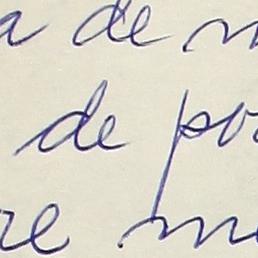 a de m
de po
re me